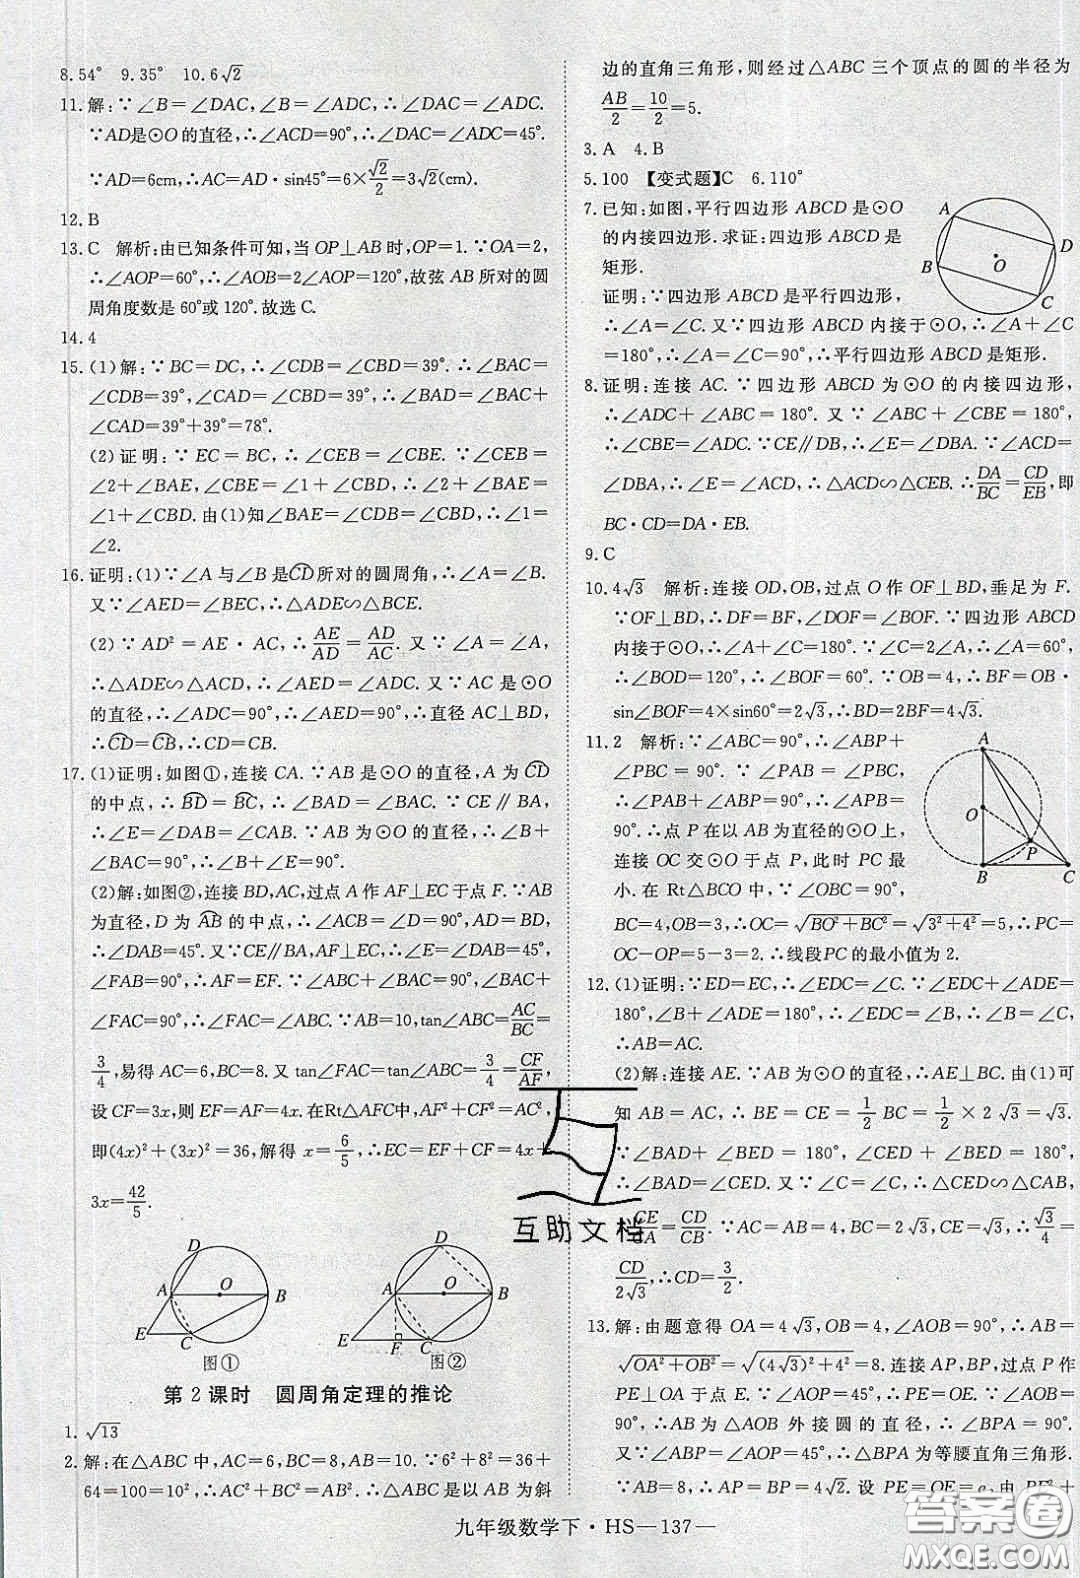 8.54°　9.35°　10.6√2
11.解：∵∠B＝∠DAC，∠B＝∠ADC，∴∠DAC＝∠ADC.
∵AD是⊙O的直径，∴∠ACD＝90°，∴∠ADC＝45°.
∵AD＝6cm，∴AC＝AD·sin45°＝6×√2/2＝3√2(cm).
12.B
13.C　解析：由已知条件可知，当OP⊥AB时，OP＝1.∵OA＝2，
∴∠AOP＝60°，∴∠AOB＝2∠AOP＝120°，故弦AB所对的圆
周角度数是60°或120°.故选C.
14.4
15.(1)解：∵BC＝DC，∴∠CDB＝∠CBD＝39°，∴∠BAC＝
∠CDB＝39°，∠CAD＝∠CBD＝39°，∴∠BAD＝∠BAC＋
∠CAD＝39°＋39°＝78°.
(2)证明：∵EC＝BC，∴∠CEB＝∠CBE.∵∠CEB＝
∠2＋∠BAE，∠CBE＝∠1＋∠CBD，∴∠2＋∠BAE＝
∠1＋∠CBD.由(1)知∠BAE＝∠CDB＝∠CBD，∴∠1＝
∠2.
16.证明：(1)∵∠A与∠B是CD⌒所对的圆周角，∴∠A＝∠B.
又∵∠AED＝∠BEC，∴△ADE∽△BCE.
(2)∵AD²＝AE·AC，∴AE/AD＝AD/AC.又∵∠A＝∠A，
∴△ADE∽△ACD，∴∠AED＝∠ADC.又∵AC是⊙O
的直径，∴∠ADC＝90°，∴∠AED＝90°，∴直径AC⊥BD，
∴CD⌒＝CB⌒，∴CD＝CB.
17.(1)证明：如图①，连接CA.∵AB是⊙O的直径，A为CD⌒
的中点，∴BD⌒＝BC⌒，∴∠BAD＝∠BAC.∵CE∥BA，
∴∠E＝∠DAB＝∠CAB.∵AB是⊙O的直径，∴∠B＋
∠BAC＝90°，∴∠B＋∠E＝90°.
(2)解：如图②，连接BD，AC，过点A作AF⊥EC于点F.∵AB
为直径，D为AB⌒的中点，∴∠ACB＝∠D＝90°，AD＝BD，
∴∠DAB＝45°.又∵CE∥BA，AF⊥EC，∴∠E＝∠DAB＝45°，
∠FAB＝90°，∴AF＝EF.∵∠FAC＋∠CAB＝∠CAB＋∠ABC＝90°，
∠FAC＝90°，∴∠FAC＝∠ABC.∵AB＝10，tan∠ABC＝AC/BC＝
3/4，易得AC＝6，BC＝8.又tan∠FAC＝tan∠ABC＝3/4＝CF/AF，
设CF＝3x，则EF＝AF＝4x.在Rt△AFC中，AF²＋CF²＝AC²，
即(4x)²＋(3x)²＝36，解得x＝6/5，∴EC＝EF＋CF＝4x＋
3x＝42/5.
D A O B E C
图①
D A O B E F C
图②
第2课时　圆周角定理的推论
1.√13
2.解：在△ABC中，AC＝6，BC＝8，AB＝10.∵6²＋8²＝36＋
64＝100＝10²，∴AC²＋BC²＝AB².∴△ABC是以AB为斜
边的直角三角形，则经过△ABC三个顶点的圆的半径为
AB/2＝10/2＝5.
3.A　4.B
5.100　【变式题】C　6.110°
7.已知：如图，平行四边形ABCD是⊙O
的内接四边形.求证：四边形ABCD是
矩形.
证明：∵四边形ABCD是平行四边形，
∴∠A＝∠C.又∵四边形ABCD内接于⊙O，∴∠A＋∠C
＝180°，∴∠A＝∠C＝90°，∴平行四边形ABCD是矩形.
A D O B C
8.证明：连接AC.∵四边形ABCD为⊙O的内接四边形，
∴∠ADC＋∠ABC＝180°.又∵∠ABC＋∠CBE＝180°，
∴∠CBE＝∠ADC.∵CE∥DB，∴∠E＝∠DBA.∵∠ACD＝
∠DBA，∴∠E＝∠ACD，∴△ACD∽△CEB.∴DA/BC＝CD/EB，即
BC·CD＝DA·EB.
9.C
10.4√3　解析：连接OD，OB，过点O作OF⊥BD，垂足为F.
∵OF⊥BD，∴DF＝BF，∠DOF＝∠BOF.∵四边形ABCD
内接于⊙O，∴∠A＋∠C＝180°.∵∠C＝2∠A，∴∠A＝60°，
∴∠BOD＝120°，∴∠BOF＝60°.∵OB＝4，∴BF＝OB·
sin∠BOF＝4×sin60°＝2√3，∴BD＝2BF＝4√3.
11.2　解析：∵∠ABC＝90°，∴∠ABP＋
∠PBC＝90°.∵∠PAB＝∠PBC，
∴∠BAP＋∠ABP＝90°，∴∠APB＝
90°.∴点P在以AB为直径的⊙O上，
连接OC交⊙O于点P，此时PC最
小.在Rt△BCO中，∵∠OBC＝90°，
BC＝4，OB＝3，∴OC＝√(BO²＋BC²)＝√(3²＋4²)＝5，∴PC＝
OC－OP＝5－3＝2.∴线段PC的最小值为2.
A O P B C
12.(1)证明：∵ED＝EC，∴∠EDC＝∠C.∵∠EDC＋∠ADE＝
180°，∠B＋∠ADE＝180°，∴∠EDC＝∠B，∴∠B＝∠C，
∴AB＝AC.
(2)解：连接AE.∵AB为⊙O的直径，∴AE⊥BC.由(1)可
知AB＝AC，∴BE＝CE＝1/2BC＝1/2×2√3＝√3.
∵∠BAD＋∠BED＝180°，∠CED＋∠BED＝180°，
∴∠BAD＝∠CED.又∵∠C＝∠C，∴△CED∽△CAB，
∴CE/CA＝CD/CB.∵AC＝AB＝4，BC＝2√3，CE＝√3，∴√3/4＝
CD/2√3，∴CD＝3/2.
13.解：由题意得OA＝4√3，OB＝4，∠AOB＝90°，∴AB＝
√(OA²＋OB²)＝√((4√3)²＋4²)＝8.连接AP，BP，过点P作
PE⊥OA于点E，∵AB为△AOB外接圆的直径，∴∠BPA＝90°.
又∵∠ABP＝∠AOP＝45°，∴△ABP为等腰直角三角形.
九年级数学下·HS—137—
互助文档
答案圈
MXQE.COM